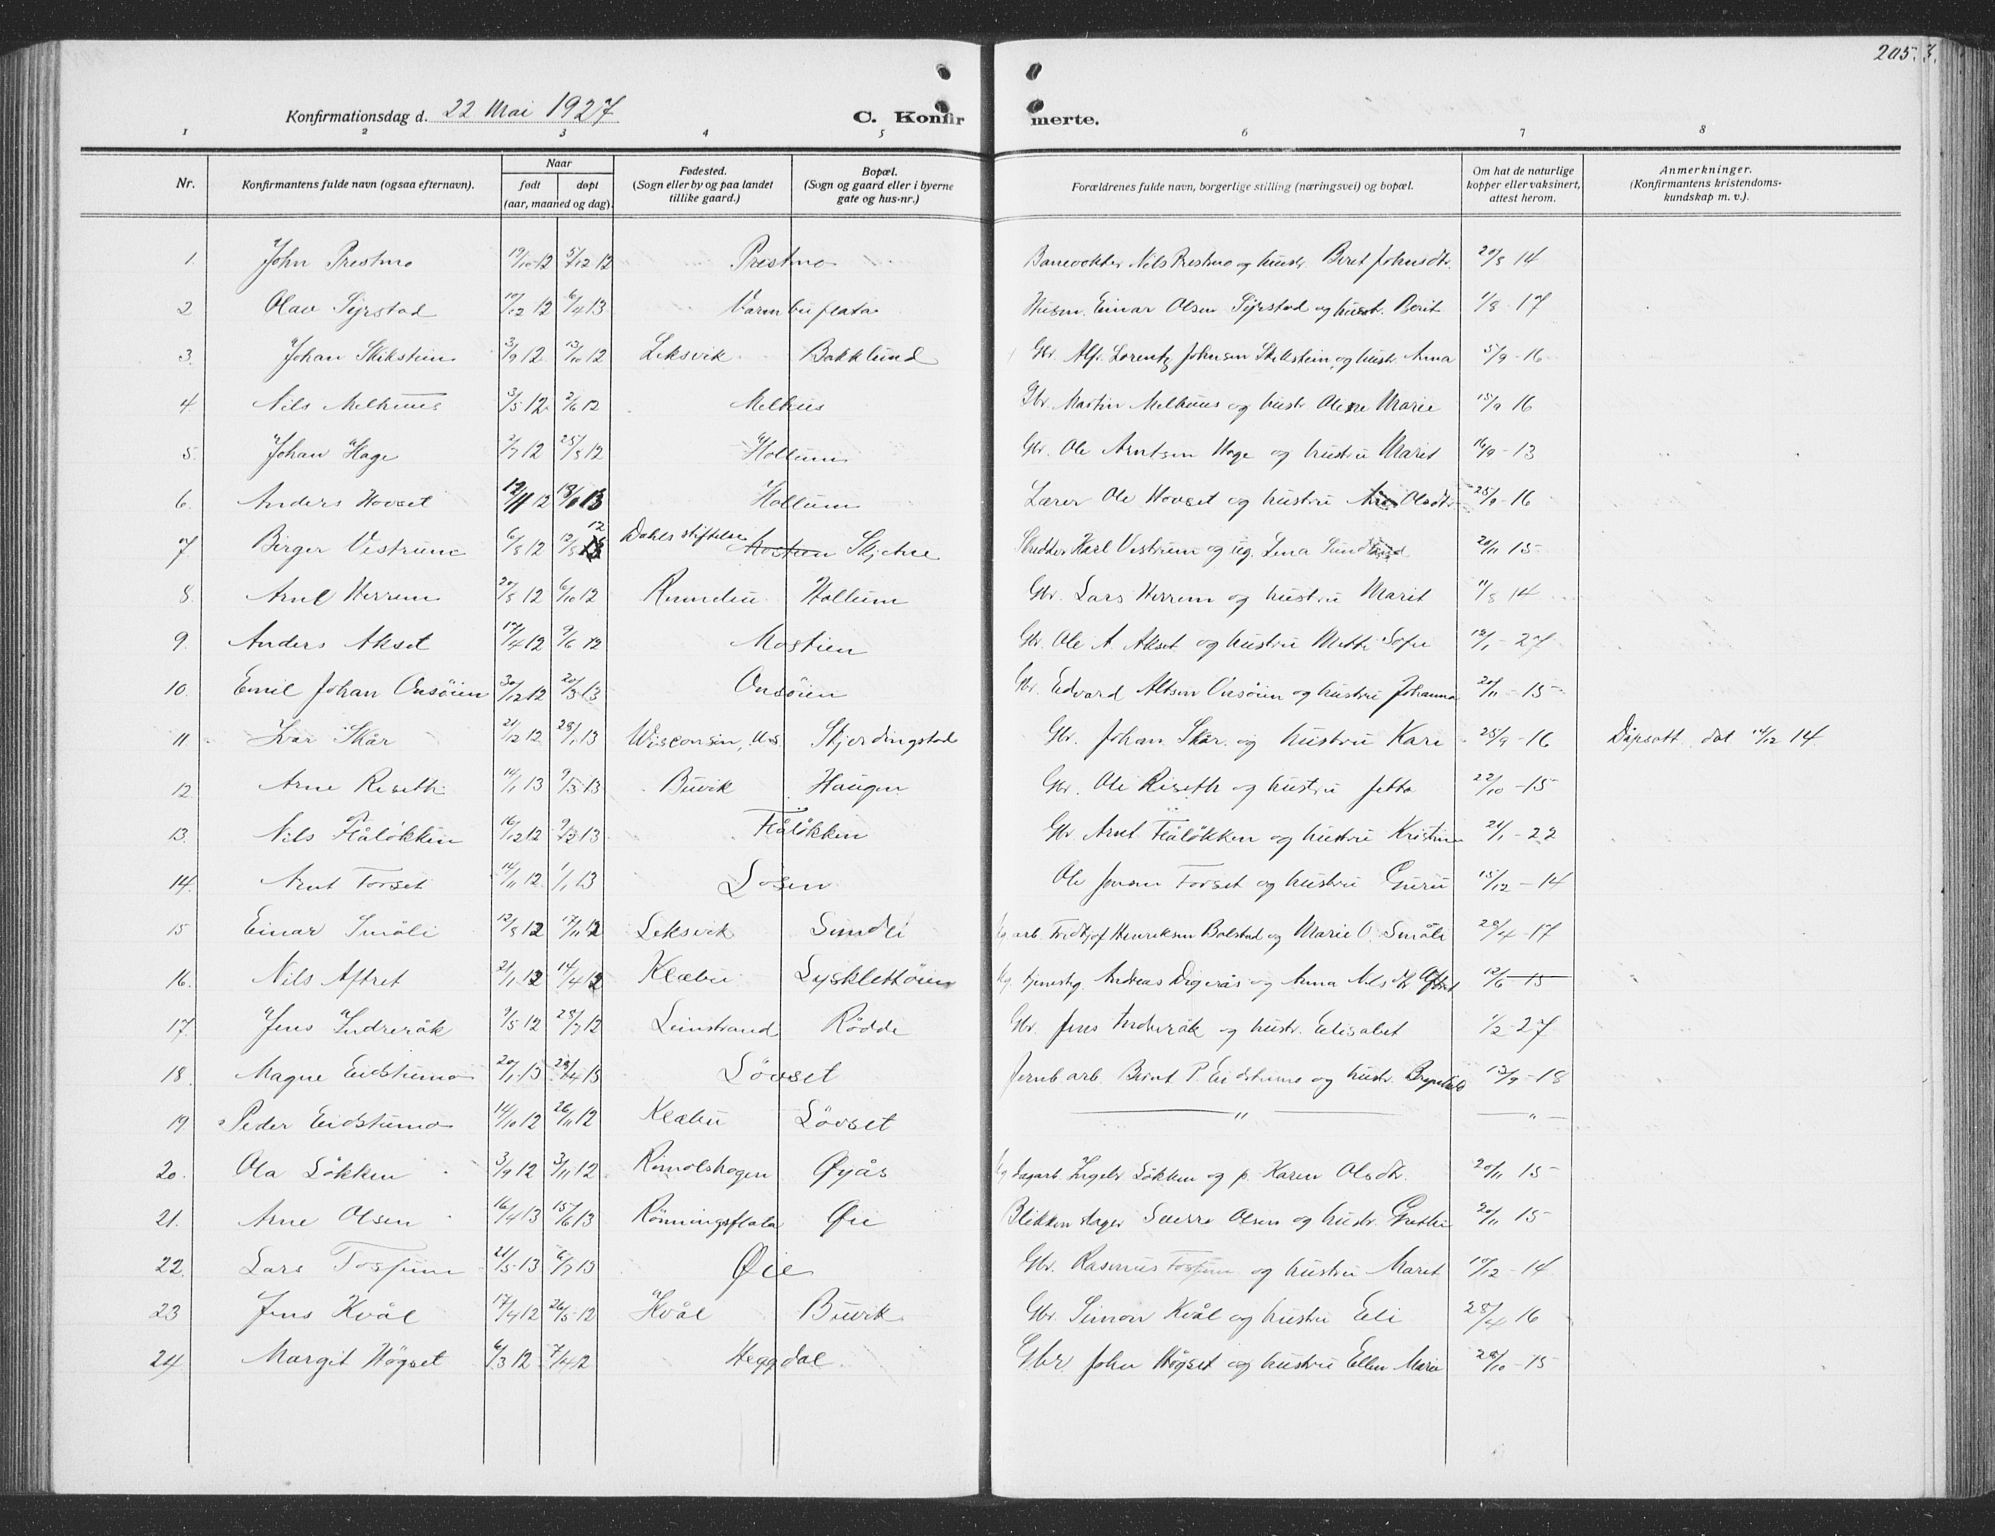 205. 3.
Konfirmationsdag d. 22 Mai 1927 C. Konfirmerte.
1 2 3 4 5 6 7 8
Nr. Konfirmantens fulde navn (ogsaa efternavn). Naar født døpt (aar, maaned og dag). Fødested. (Sogn eller by og paa landet tillike gaard.) Bopæl. (Sogn og gaard eller i byerne gate og hus-nr.) Forældrenes fulde navn, borgerlige stilling (næringsvei) og bopæl. Om hat de naturlige kopper eller vaksinert, attest herom. Anmerkninger. (Konfirmantens kristendomskundskap m. v.).
1. John Prestmo 19/10 12 5/12 12 Prestmo Banevokter Nils Prestmo og hustr. Beret Johnsdtr. 20/8 14
2 Olav Syrstad 12 6/4 13 Varmbuflata Einar Olsen Syrstad og hustr. Berit 1/8 - 17
3. Johan Skilstein 3/9 12 13/10 12 Leksvik Bakklund Gbr. Alf. Lorentz Johnsen Skilstein og hustr. Anna 5/9 - 16
4 Nils Melhuus 3/5 12 2/6 12 Melhus Gbr Martin Melhuus og hustr Oline Marie 15/9 16
5. Johan Hage 2/7 12 25/8 12 Hollum Gbr. Ole Arntsen Hage og hustru Marit 16/9 - 13
6. Anders Hovset 12 13 Hollum Lærer Ole Hovset og hustru Olsdtr. 25/9 - 16
7 Birger Vestrum 6/8 12 12 Dahls stiftelse Mostien Skjetne Skredder Karl Vestrum og ug. Lena Sundlund 20/11 15
8. Arne Herrem 20/8 12 6/10 12 Rennebu Hollum Gbr. Lars Herrem og hustru Marit 11/8 14
9. Anders Akset 17/4 12 9/6 12 Mostien Gbr. Ole A. Akset og hustru Mette Sofie 12/1 - 27
10. Emil Johan Onsöien 30/12 12 20/3 13 Onsöien Gbr. Edvard Onsöien og hustru Johanna 20/11 - 15
11 Ivar Skår 21/12 12 28/1 13 Wisconsin, U.S. Skjerdingstad Gbr. Johan Skår og hustru Kari 25/9 - 16 Dåpsatt. dat. 14/12 14
12. Arne Riseth 14/1 13 9/3 13 Buvik Haugen Gbr. Ole Riseth og hustru Jetta 22/10 - 15
13. Nils Flålökken 16/12 12 9/2 13 Flålökken Gbr. Arnt Flålökken og hustru Kristine 24/1 - 22
14. Arnt Forset 14/11 12 1/1 13 Losen Ole Jonsen Forset og hustru Guru 15/12 - 14
15 Einar Småli 12/8 12 17/11 12 Leksvik Sundli arb. Fridtjof Henriksen Bolstad og Marie O. Småli 28/4 - 17
16. Nils Aftret 21/1 12 14/4 12 Klæbu Lysklettöien Andreas Digerås og Anna Nilsdtr Aftret 12/6 - 15
17. Jens Indreråk 9/5 12 28/7 12 Leinstrand Rödde Gbr. Jens Indreråk og hustr. Elisabet 1/2 - 27
18. Magne Eidstumo 20/1 13 29/4 13 Lövset Jernb arb. Bernt P. Eidstumo og hustr. 12/9 - 18
19 Peder Eidstumo 14/10 12 26/11 12 Klæbu Lövset — " — — " —
20. Ola Lökken 3/9 12 3/11 12 Rimolshagen Øyås Ingebr. Lökken og p. Karen Olsdtr. 20/11 15
21. Arne Olsen 16/4 13 15/6 13 Rönningsflata Øie Blikkenslager Sverre Olsen og hustr. Grethe 20/11 15
22. Lars Fossum 21/5 13 6/7 13 Øie Gbr. Rasmus Fossum og hustru Marit 10/12 - 14
23 Jens Kvål 17/4 12 26/5 12 Kvål Buvik Gbr. Simon Kvål og hustru Eli 28/4 16
24. Margit Högset 6/3 12 7/4 12 Heggdal Gbr John Högset og hustru Ellen Marie 28/10 - 15